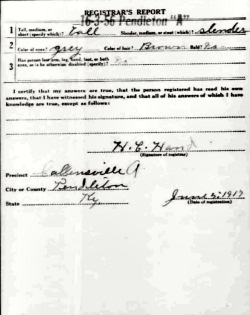 REGISTRAR'S REPORT
16-3-56 Pendleton "A"
1 Tall, medium, or short (specify which)? tall Slender, medium, or stout (which)? slender
2 Color of eyes? grey Color of hair? Brown Bald? No
3 Has person lost arm, leg, hand, foot, or both eyes, or is he otherwise disabled (specify)? No
I certify that my answers are true, that the person registered has read his own
answers, that I have witnessed his signature, and that all of his answers of which I have
knowledge are true, except as follows:
H. C. Hand
(Signature of registrar)
Precinct Callensville A
City or County Pendleton
State Ky.
June 5, 1917
(Date of registration)